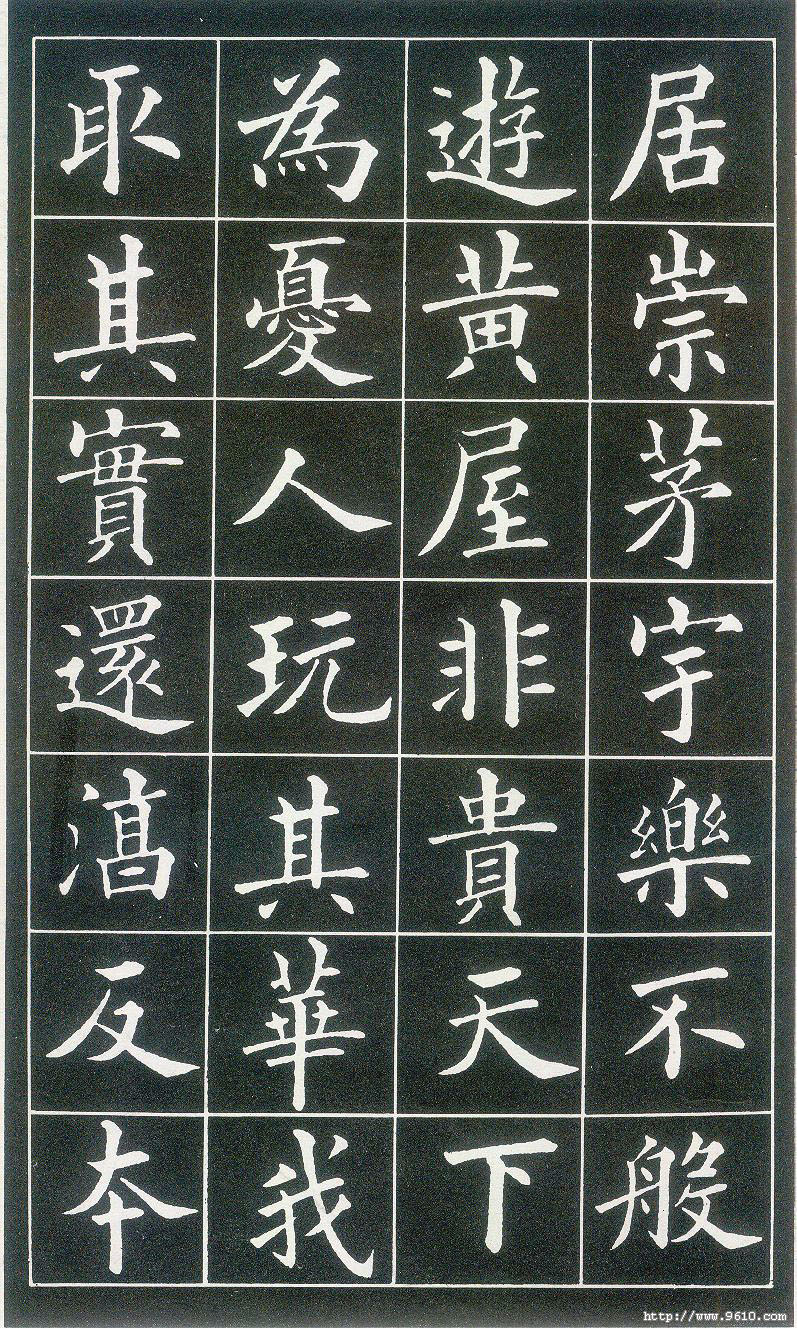 居崇茅宇樂不般
遊黃屋非貴天下
為憂人玩其華我
取其實還湻反本
http://www.9610.com